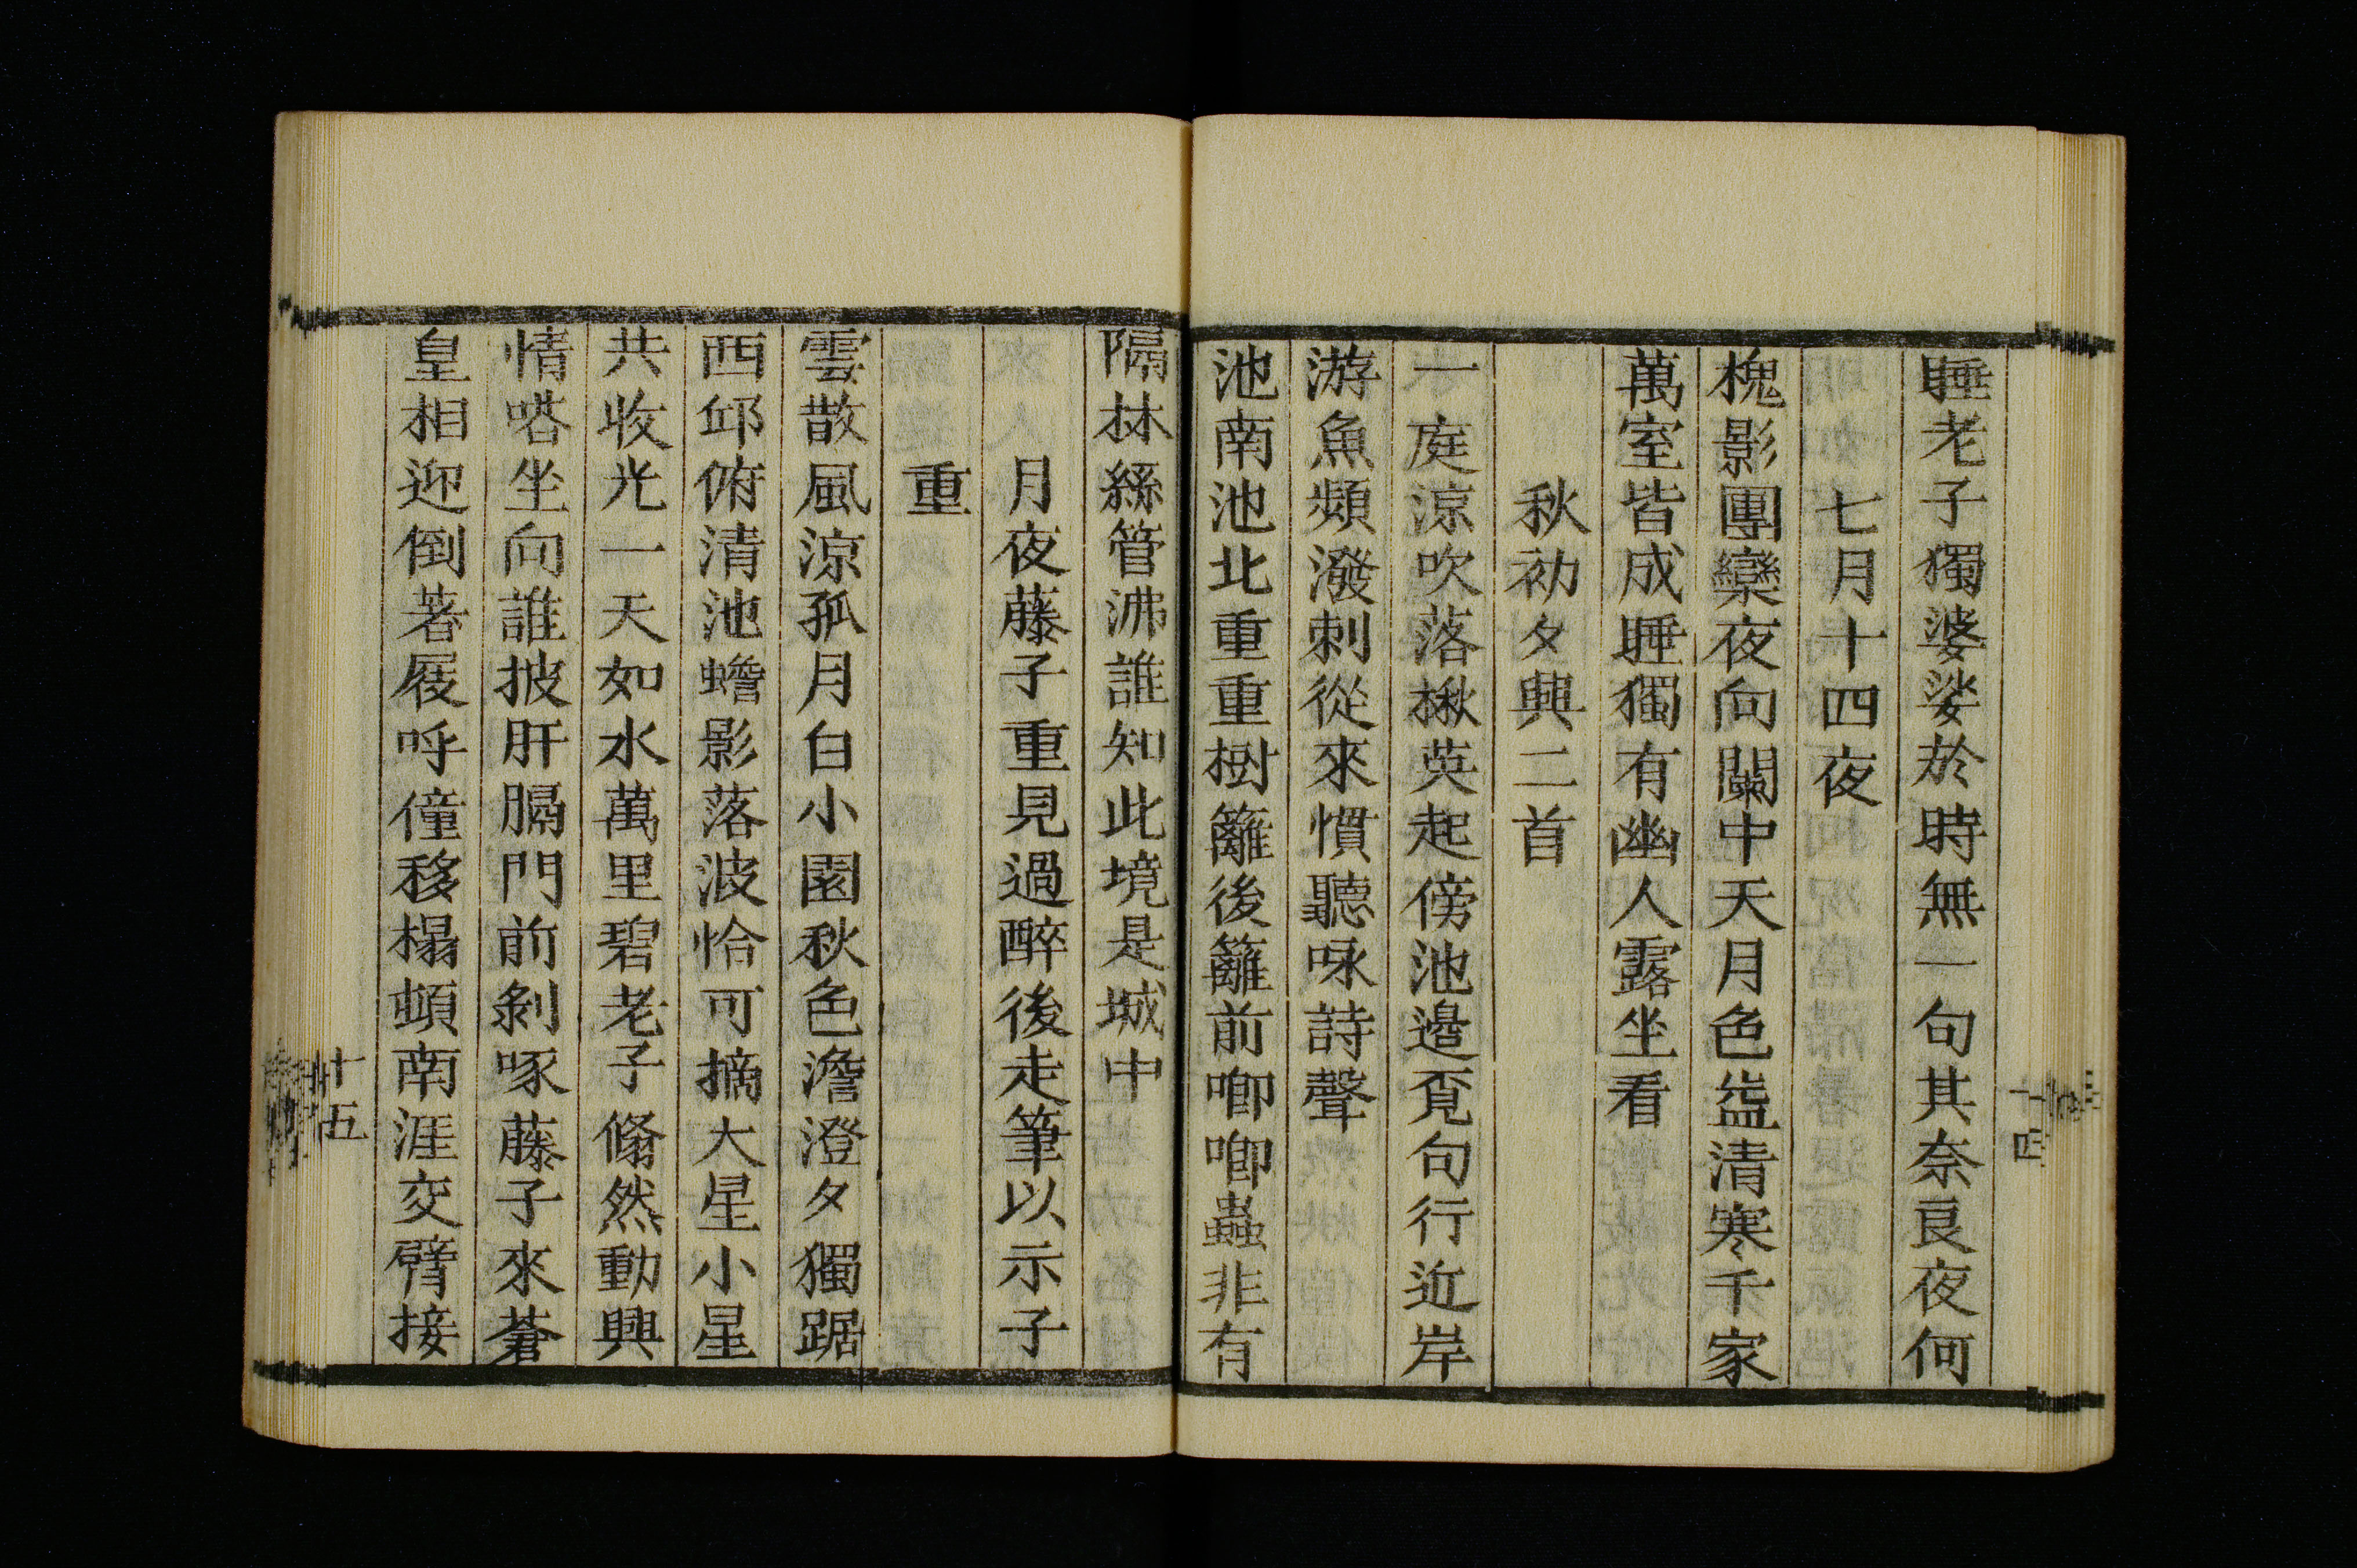 睡老子獨婆娑於時無一句其奈良夜何
七月十四夜
槐影團欒夜向闌中天月色益清寒千家
萬室皆成睡獨有幽人露坐看
秋初夕興二首
一庭涼吹落楸英起傍池邉覔句行近岸
游魚頻潑刺從來慣聽咏詩聲
池南池北重重樹籬後籬前喞喞蟲非有
十四
隔林絲管沸誰知此境是城中
月夜藤子重見過醉後走筆以示子
重
雲散風涼孤月白小園秋色澹澄夕獨踞
西邱俯清池蟾影落波恰可摘大星小星
共收光一天如水萬里碧老子翛然動興
情嗒坐向誰披肝膈門前剝啄藤子來蒼
皇相迎倒著屐呼僮移榻頓南涯交臂接
十五